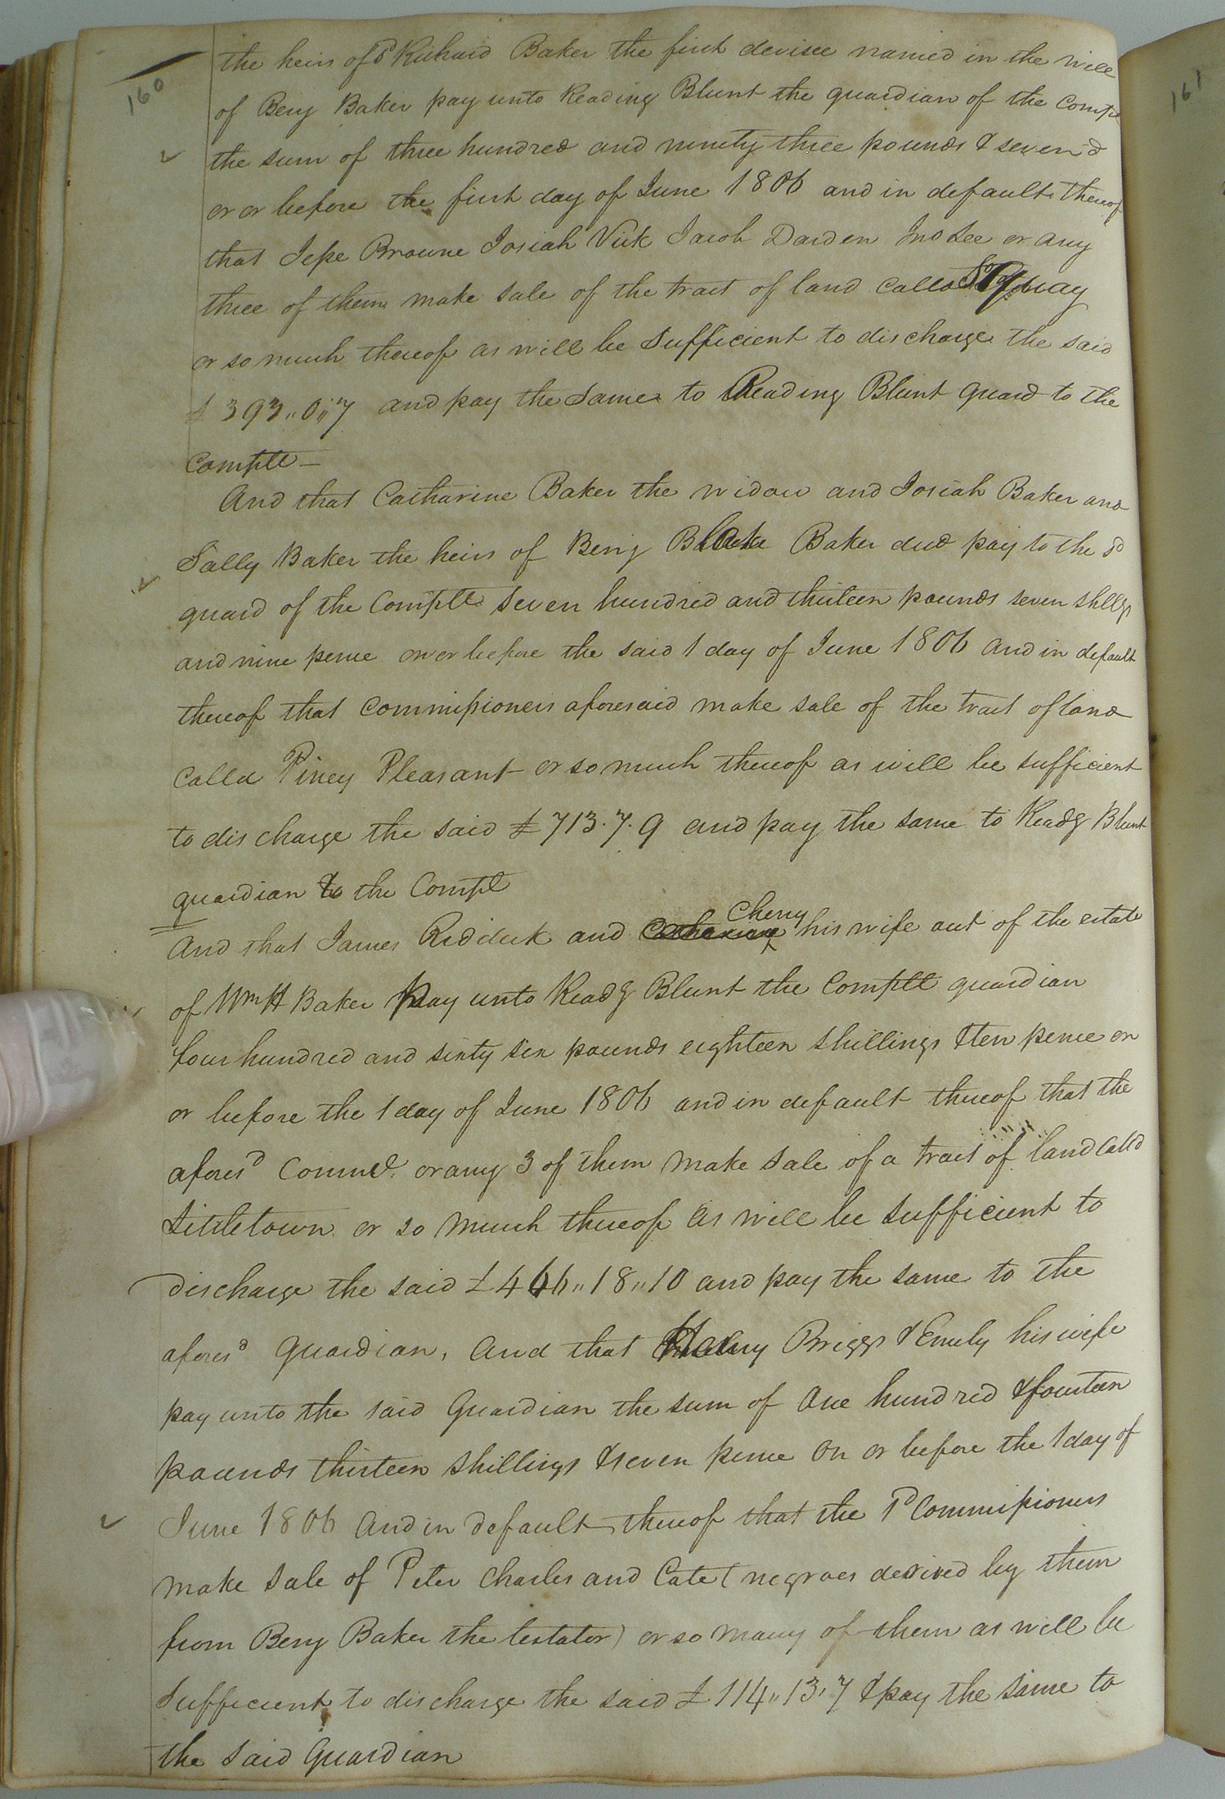 160
161
the heirs of sd Richard Baker the first devisee named in the will
of Benj Baker pay unto Reading Blunt the guardian of the Complt
the sum of three hundred and ninety three pounds & seven d
or or before the first day of June 1806 and in default thereof
that Jesse Browne Josiah Vick Jacob Darden Jno Lee or any
three of them make sale of the tract of land calld
or so much thereof as will be sufficient to discharge the said
£ 393,,0,,7 and pay the same to Reading Blunt guard to the
Complt —
And that Catharine Baker the widow and Josiah Baker and
Sally Baker the heirs of Benj Blake Baker decd pay to the sd
guard of the Complt seven hundred and thirteen pounds seven shllgs
and nine pence on or before the said 1 day of June 1806 and in default
thereof that Commissioners aforesaid make sale of the tract of land
calld Piney Pleasant or so much thereof as will be sufficient
to discharge the said £ 713.7.9 and pay the same to Readg Blunt
guardian to the Compl
And that James Riddick and Cherry his wife out of the estate
of Wm H Baker pay unto Readg Blunt the Complt guardian
four hundred and sixty six pounds eighteen shillings & ten pence on
or before the 1 day of June 1806 and in default thereof that the
aforesd Commrs or any 3 of them make sale of a tract of land calld
Littletown or so much thereof as will be sufficient to
discharge the said £ 466,,18,,10 and pay the same to the
aforesd Guardian, And that Henry Briggs & Emily his wife
pay unto the said Guardian the sum of One hundred & fourteen
pounds thirteen shillings & seven pence on or before the 1 day of
June 1806 And in default thereof that the sd Commissioners
make sale of Peter Charles and Cate (negroes derived by them
from Benj Baker the testator) or so many of them as will be
sufficient to discharge the said £ 114,,13,7 & pay the same to
the said Guardian